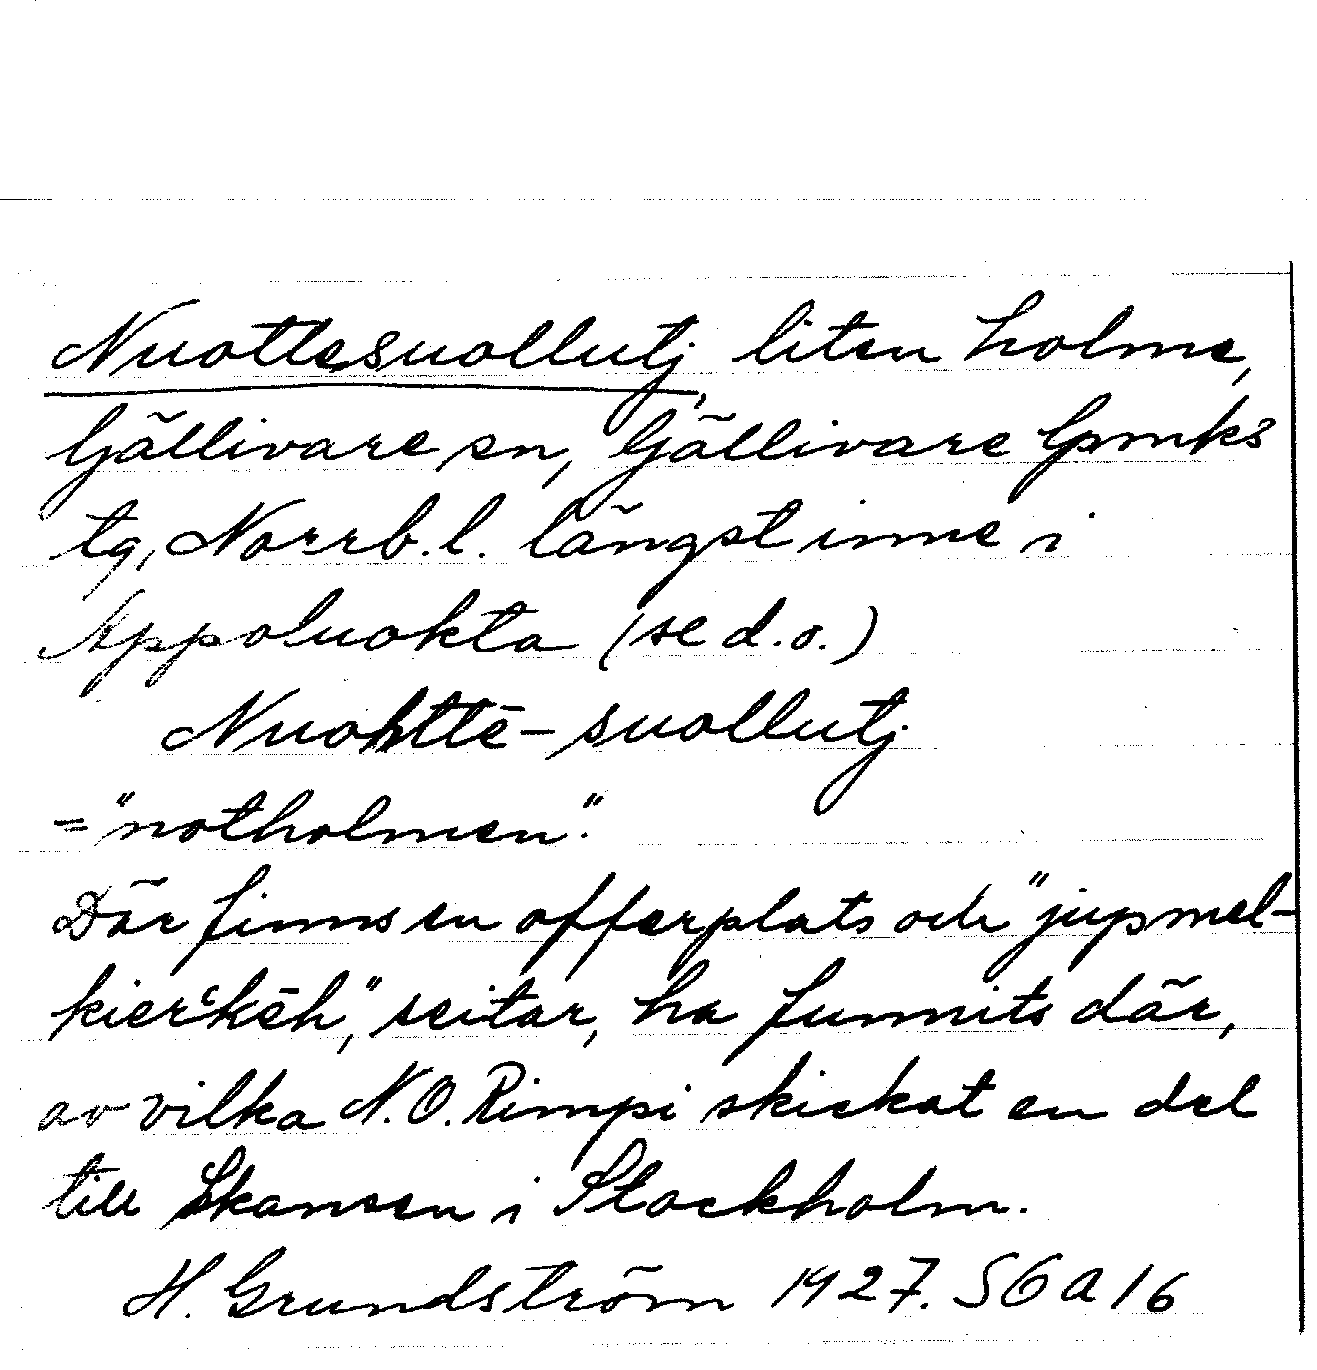 Nuottesuollutj, liten holme,
Gällivare sn, Gällivare lpmks
tg, Norrb.l. längst inne i
Appoluokta (se d.o.)
Nuohttē-suollutj
="notholmen".
Där finns en offerplats och "jupmel-
kierʿkēh", seitar, ha funnits där,
av vilka N.O. Rimpi skickat en del
till Skansen i Stockholm.
H. Grundström 1927. S6a16